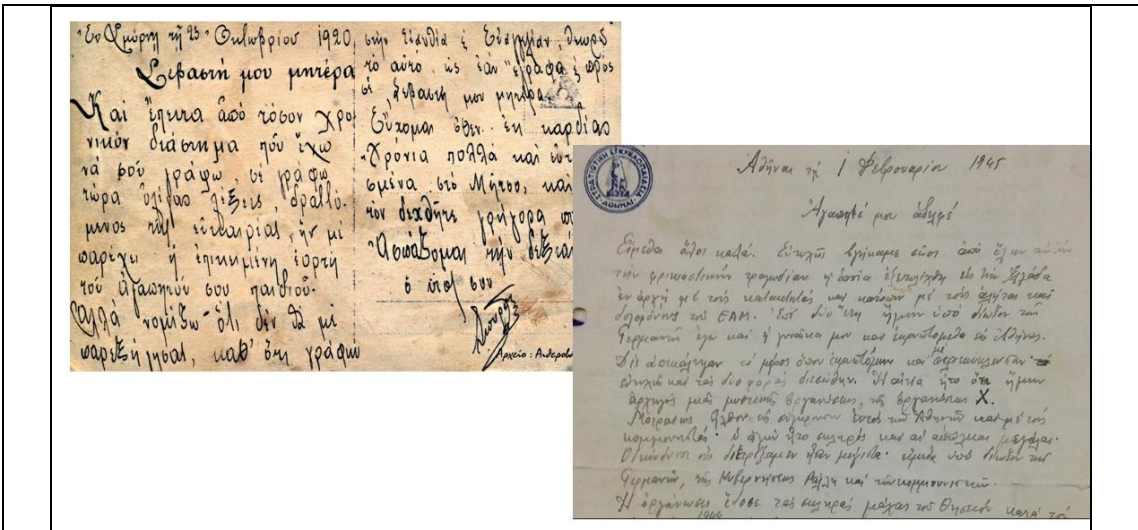 Ἐν Σμύρνῃ τῇ 23 Ὀκτωβρίου 1920
Σεβαστή μου μητέρα
Καὶ ἔπειτα ἀπὸ τόσον χρο-
νικὸν διάστημα ποῦ ἔχω
νά σοῦ γράψω, σὲ γράφω
τώρα ὀλίγας λέξεις, δραττό-
μενος τῆς εὐκαιρίας, ἣν μὲ
παρέχει ἡ ἐπικειμένη ἑορτή
τοῦ ἀγαπητοῦ σου παιδιοῦ.
Ἀλλὰ νομίζω ὅτι δὲν θὰ μὲ
παρεξηγήσαι, καθ' ὅτι γράφω
στὴν Εὐανθία ἢ Εὐαγγελίαν, θεωρῶ
τὸ αὐτό, ὡς ἐὰν ἔγραφα πρὸς
σέ, σεβαστή μου μητέρα.
Εὔχομαι ὅθεν ἐκ καρδίας
Χρόνια πολλὰ καὶ
στὸ Μῆτσο, καὶ
τὸν δεχθῆτε γρήγορα
Ἀσπάζομαι τὴν δεξιάν
ὁ υἱός σου
Σπύρος
Αρχείο : Ανθεροβ
ΣΤΡΑΤΙΩΤΙΚΗ ΕΓΚΥΚΛΟΠΑΙΔΕΙΑ
ΑΘΗΝΑΙ
Ἀθῆναι τῇ 1 Φεβρουαρίου 1945
Ἀγαπητέ μου ἀδελφέ
Εἴμεθα ὅλοι καλά. Εὐτυχῶς βγήκαμε σῶοι ἀπὸ ὅλην αὐτὴν
τὴν τραγωδίαν ἡ ὁποία ἐξετυλίχθη εἰς τὴν Ἑλλάδα
ἐν ἀρχῇ μὲ τοὺς κατακτητάς καὶ κατόπιν μὲ τοὺς ἀλήτας καὶ
δολοφόνους τοῦ ΕΑΜ. Ἐπὶ δύο ἔτη ἤμην ὑπὸ δίωξιν τῶν
Γερμανῶν ἐγὼ καὶ ἡ γυναῖκα μου καὶ ἐκρυπτόμεθα εἰς Ἀθήνας.
Δὶς ἀνεκάλυψαν τὸ μέρος ὅπου ἐκρυπτόμην καὶ μὲ περιεκύκλωσαν
εὐτυχῶς καὶ τὰς δύο φορὰς διεσώθην. Ἡ αἰτία ἦτο ὅτι ἤμην
ἀρχηγὸς μιᾶς μυστικῆς ὀργανώσεως, τῆς ὀργανώσεως Χ.
Μοιραίως ἦλθον εἰς σύγκρουσιν ἐντὸς τῶν Ἀθηνῶν καὶ μὲ τοὺς
κομμουνιστάς. ὁ ἀγὼν ἦτο σκληρὸς καὶ αἱ ἀπώλειαι μεγάλαι.
Οἱ κίνδυνοι οὓς διετρέξαμεν ἦσαν μέγιστοι. εἴμεθα ὑπὸ δίωξιν τῶν
Γερμανῶν, τῆς Κυβερνήσεως Ράλλη καὶ τῶν κομμουνιστῶν.
Ἡ ὀργάνωσις ἔδωσε τὰς σκληρὰς μάχας τοῦ Θησείου κατὰ τὸν